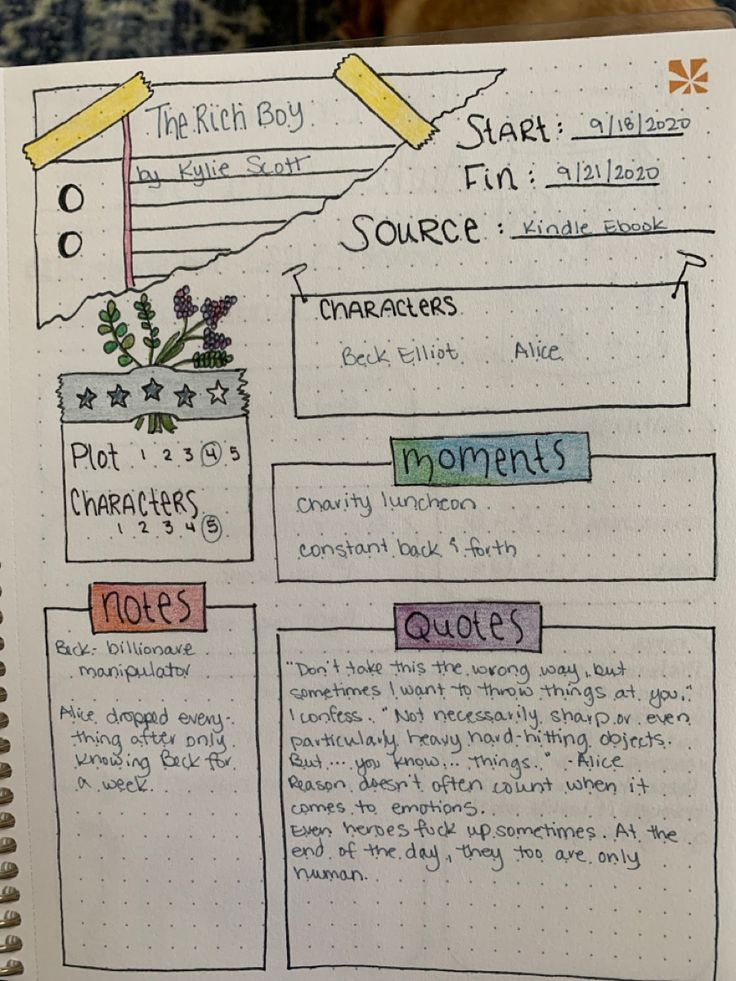 The Rich Boy
by Kylie Scott
Start: 9/18/2020
Fin: 9/21/2020
Source: Kindle Ebook
Characters
Beck Elliot Alice
Plot 1 2 3 4 5
Characters
1 2 3 4 5
moments
charity luncheon
constant back & forth
notes
Beck- billionare
manipulator
Alice dropped every-
thing after only
knowing Beck for
a week.
Quotes
"Don't take this the wrong way, but
sometimes I want to throw things at you,"
I confess. "Not necessarily sharp or even
particularly heavy hard-hitting objects.
But... you know... things." -Alice
Reason doesn't often count when it
comes to emotions.
Even heroes fuck up sometimes. At the
end of the day, they too are only
human.